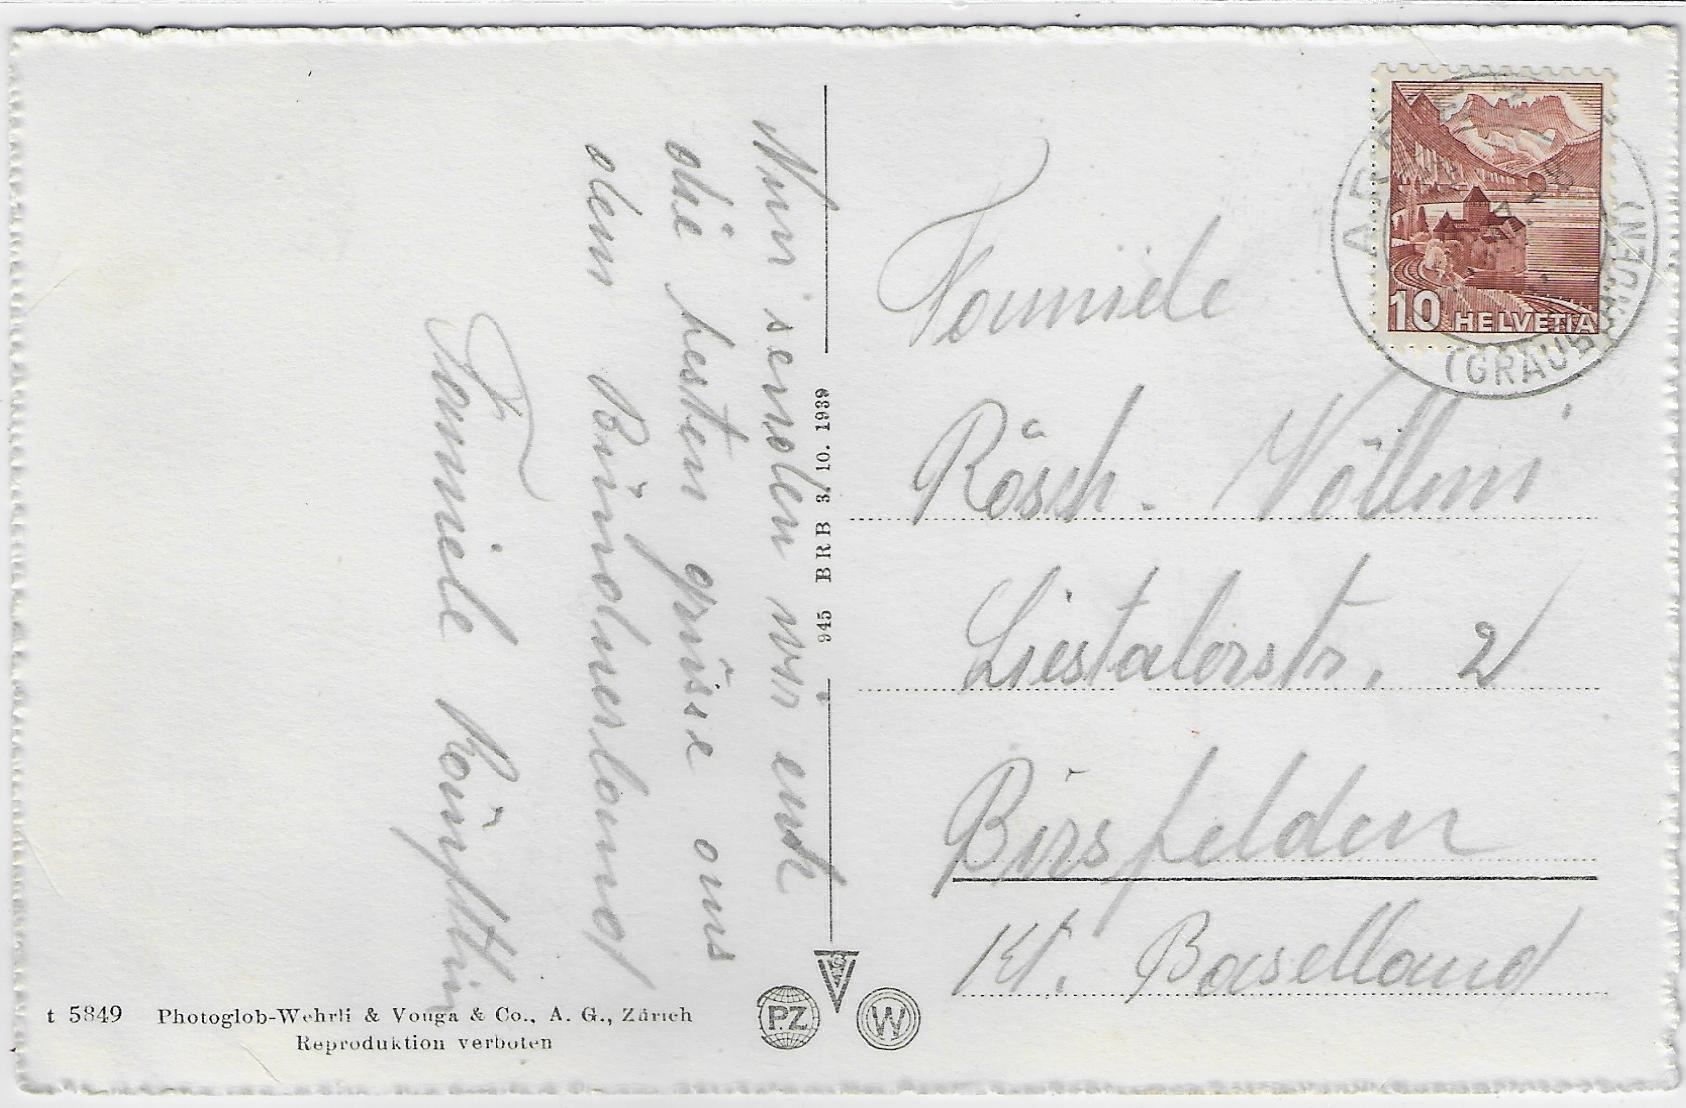 Wir senden wir euch
die besten grüsse aus
dem Bündnerland
Familie
945 BRB 3. 10. 1939
Familie
Rösch. Völlmi
Liestalerstr. 2
Birsfelden
Kt. Baselland
10 HELVETIA
(GRAUBÜNDEN)
t 5849 Photoglob-Wehrli & Vouga & Co., A. G., Zürich
Reproduktion verboten
PZ
W